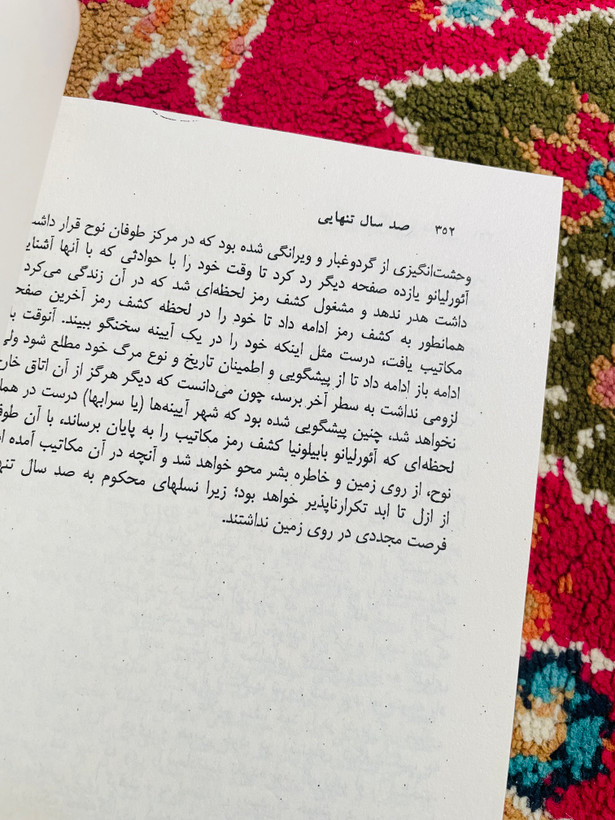 ۳۵۲ صد سال تنهایی
وحشت‌انگیزی از گردوغبار و ویرانگی شده بود که در مرکز طوفان نوح قرار داشت
آئورلیانو یازده صفحه دیگر رد کرد تا وقت خود را با حوادثی که با آنها آشنایی
داشت هدر ندهد و مشغول کشف رمز لحظه‌ای شد که در آن زندگی می‌کرد
همانطور به کشف رمز ادامه داد تا خود را در لحظه کشف رمز آخرین صفحه
مکاتیب یافت، درست مثل اینکه خود را در یک آیینه سخنگو ببیند. آنوقت
ادامه باز ادامه داد تا از پیشگویی و اطمینان تاریخ و نوع مرگ خود مطلع شود ولی
لزومی نداشت به سطر آخر برسد، چون می‌دانست که دیگر هرگز از آن اتاق خارج
نخواهد شد، چنین پیشگویی شده بود که شهر آیینه‌ها (یا سرابها) درست در
لحظه‌ای که آئورلیانو بابیلونیا کشف رمز مکاتیب را به پایان برساند، با آن
نوح، از روی زمین و خاطره بشر محو خواهد شد و آنچه در آن مکاتیب آمده
از ازل تا ابد تکرارناپذیر خواهد بود؛ زیرا نسلهای محکوم به صد سال
فرصت مجددی در روی زمین نداشتند.